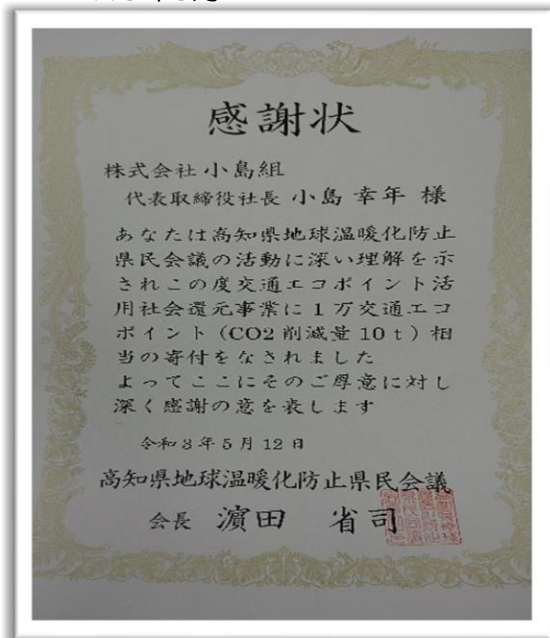 感謝状
株式会社小島組
代表取締役社長 小島幸年 様
あなたは高知県地球温暖化防止
県民会議の活動に深い理解を示
されこの度交通エコポイント活
用社会還元事業に1万交通エコ
ポイント(CO2削減量10t)相
当の寄付をなされました
よってここにそのご厚意に対し
深く感謝の意を表します
令和3年5月12日
高知県地球温暖化防止県民会議
会長 濵田 省司